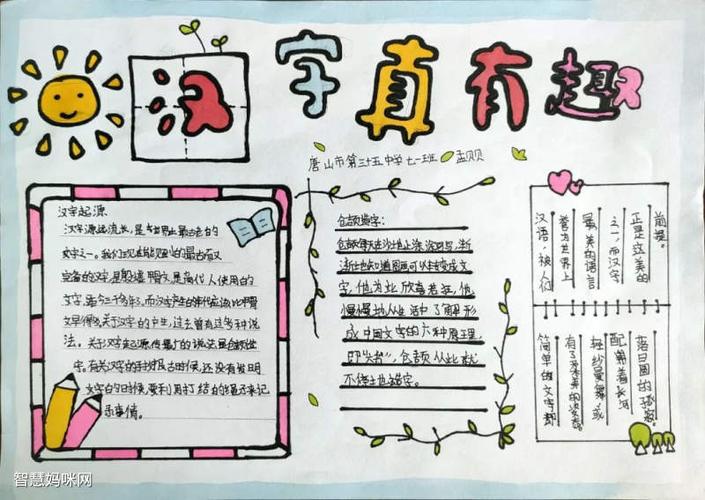 汉字真有趣
唐山市第三十五中学 七一班 孟贝贝
汉字起源
汉字源起流长，是世界上最古老的
文字之一。我们现在能见到的最古而又
完备的汉字，是殷墟甲骨文是商代人使用的
文字，距今三千多年，而汉字产生的年代应该比甲骨
文早得多，关于汉字的产生，过去曾有过多种说
法。关于汉字起源，传最广的说法是仓颉造
字。有关汉字的
文字的时候，要利用打结的绳子来记
录事情。
仓颉造字：
仓颉每天在沙地上涂涂写写，渐
渐也知道图画可以转变成文
字，他为此欣喜若狂，他
慢慢地从生活中了解形
成中国文字的六种原理，
即“六书”，仓颉从此就
不停地造字。
汉语，被人们
誉为世界上
最美的语言
之一，而汉字
正是立美的
前提。
简单的文字都
有了
轻纱曼舞，或
配
落日圆的
智慧妈咪网